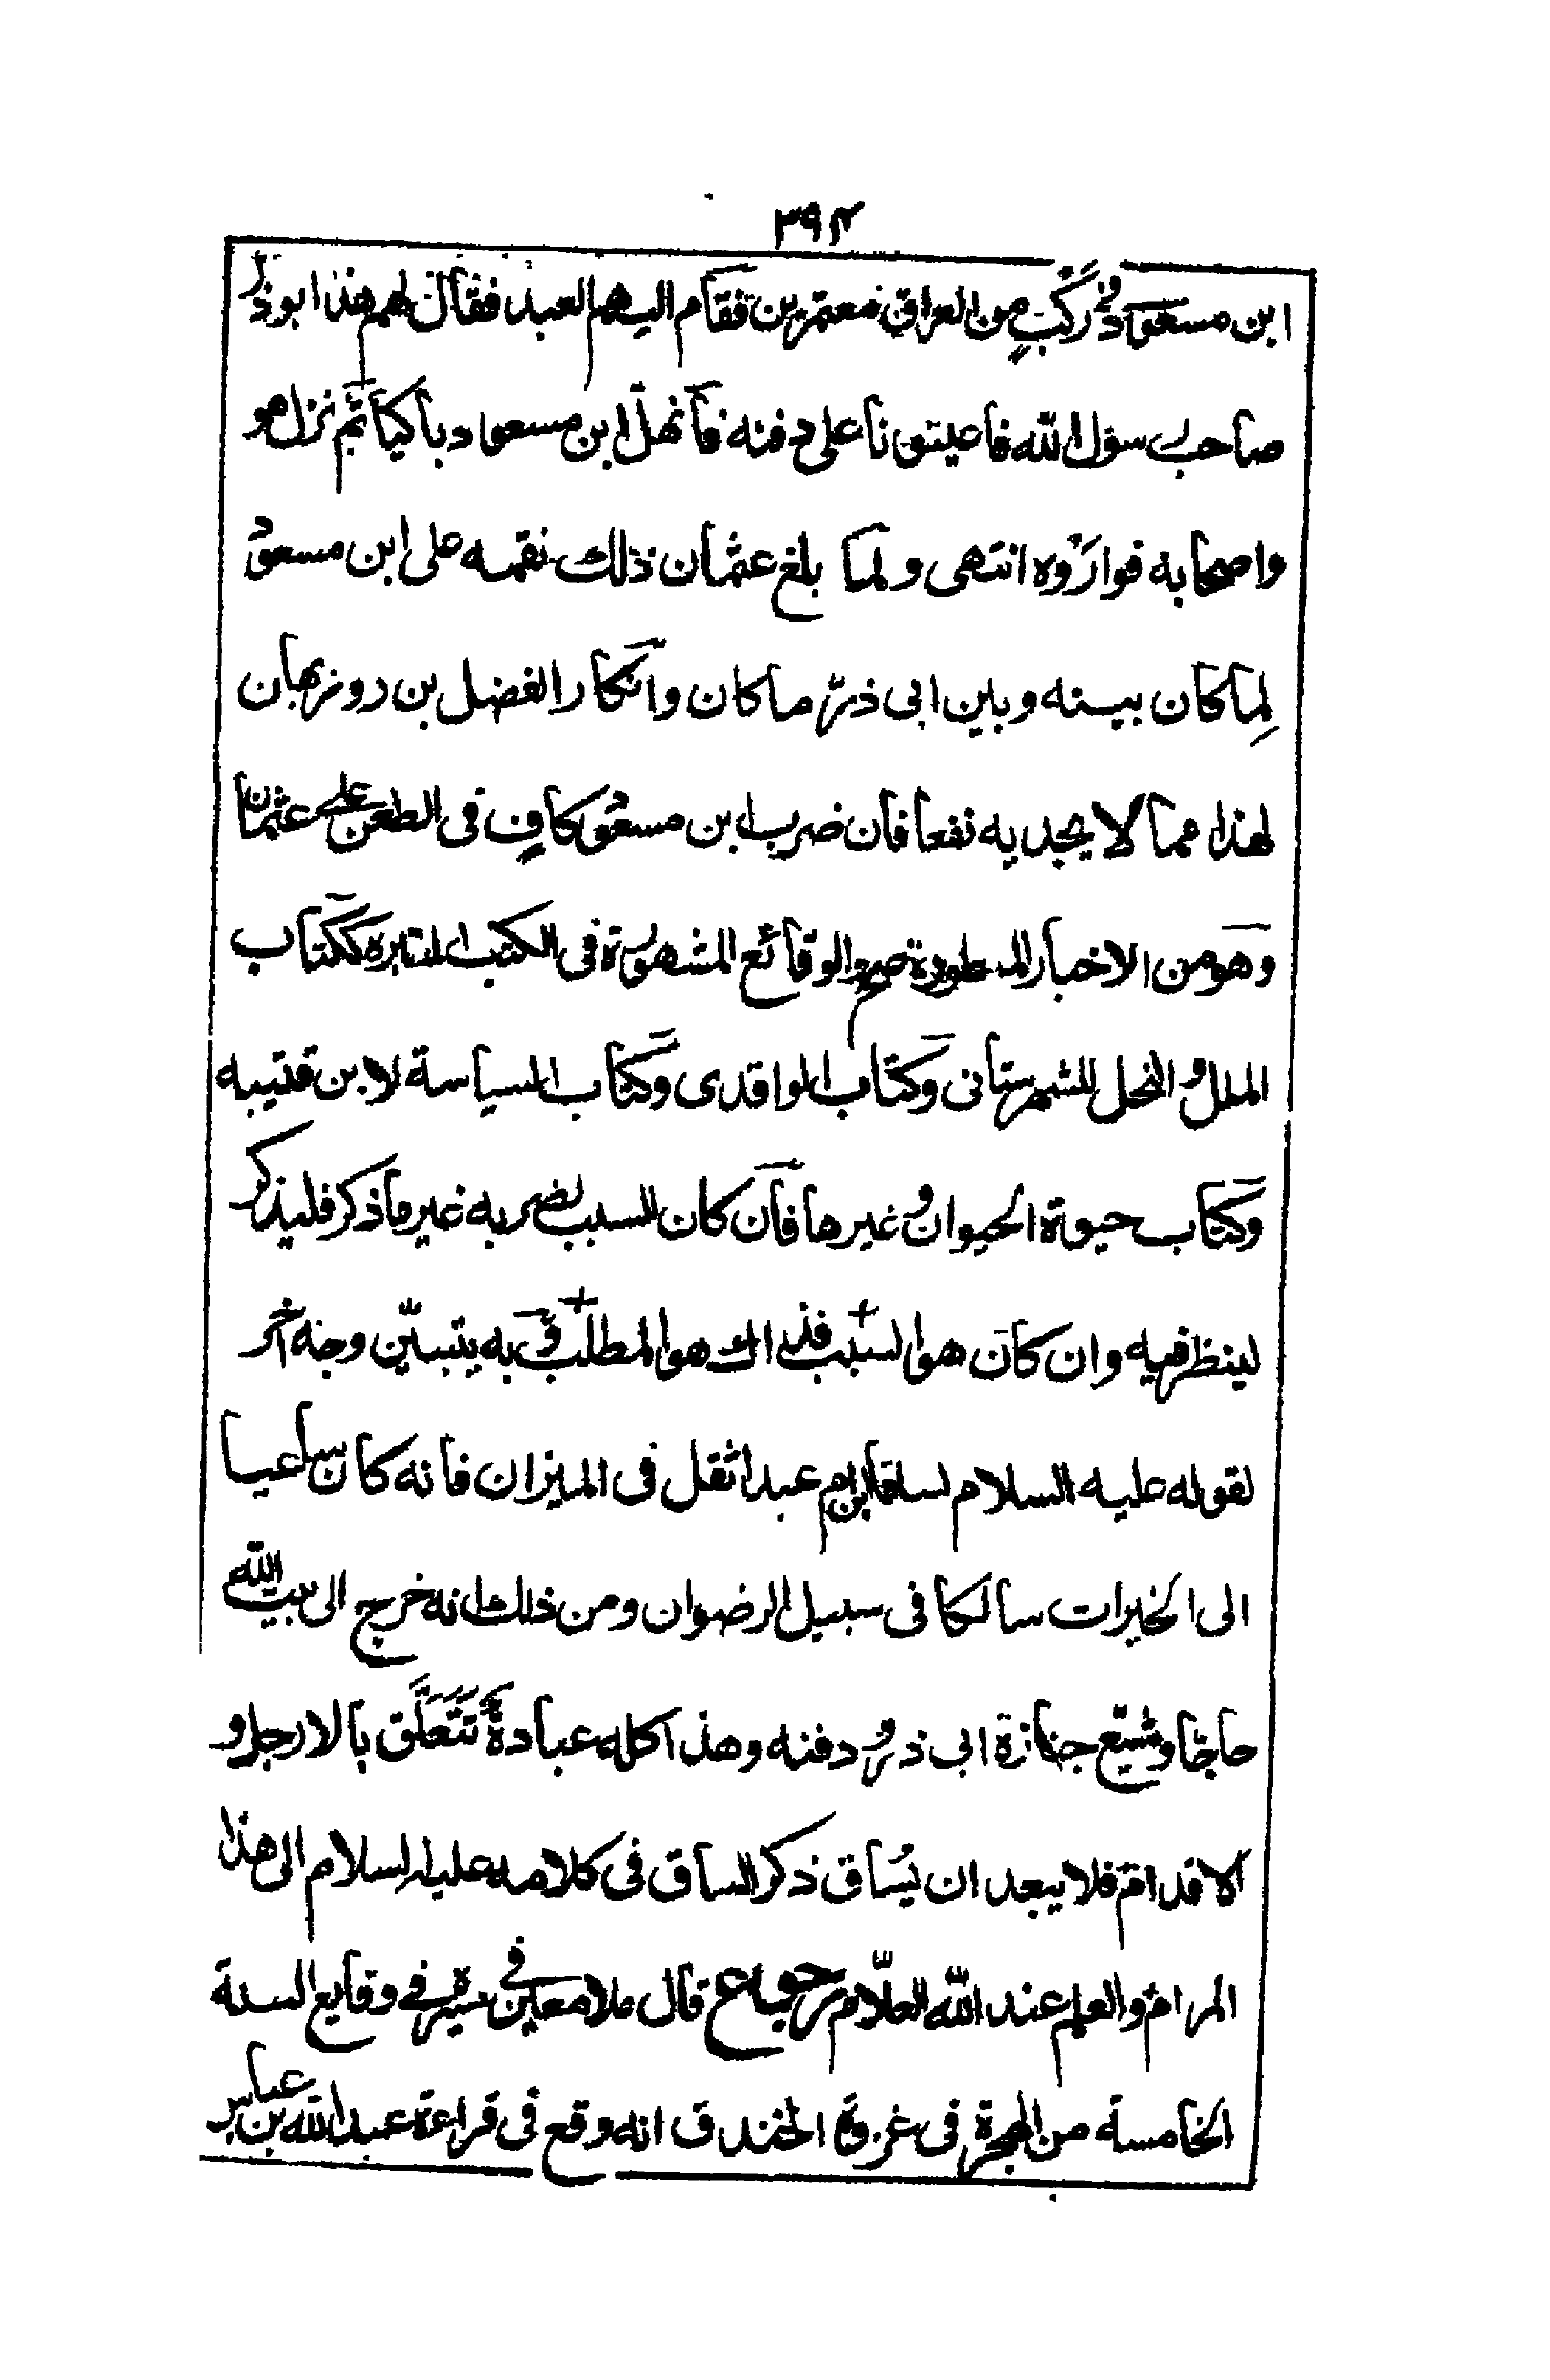 ٣٩٢
ابن مسعود في رَكْبٍ من العراق معتمرين فقام اليهم العبد فقال لهم هذا ابوذر
صاحب رسول الله فاعينونا على دفنه فانهلّ ابن مسعود باكيا ثم نزل هو
واصحابه فوارَوْه انتهى ولما بلغ عثمان ذلك نقمه على ابن مسعود
لِما كان بينه وبين ابى ذرّ ما كان وانكار الفضل بن روزبهان
لهذا مما لا يجديه نفعا فان ضرب ابن مسعود كافٍ فى الطعن على عثمان
وهو من الاخبار المسطورة والوقائع المشهورة فى الكتب ككتاب
الملل و النحل للشهرستانى وكتاب الواقدى وكتاب السياسة لابن قتيبه
وكتاب حيوة الحيوان وغيرها فان كان السبب لضربه غير ما ذكر فليذكر
لينظر فيه وان كان هو السبب فذاك هو المطلب وبه يتبيّن وجه آخر
لقوله عليه السلام لساقا ابن ام عبد اثقل فى الميزان فانه كان ساعيا
الى الخيرات سالكا فى سبيل الرضوان ومن ذلك انه خرج الى بيت الله
حاجّا وشيّع جنازة ابى ذر ودفنه وهذا كله عبادة تتعلّق بالارجل و
الاقدام فلا يبعد ان يُساق ذكر الساق فى كلامه عليه السلام الى هذا
المرام والعلم عند الله العلّام رجوع قال ملا معين في سيره في وقايع السنة
الخامسة من الهجرة فى غزوة الخندق انه وقع فى قراءة عبد الله بن عباس